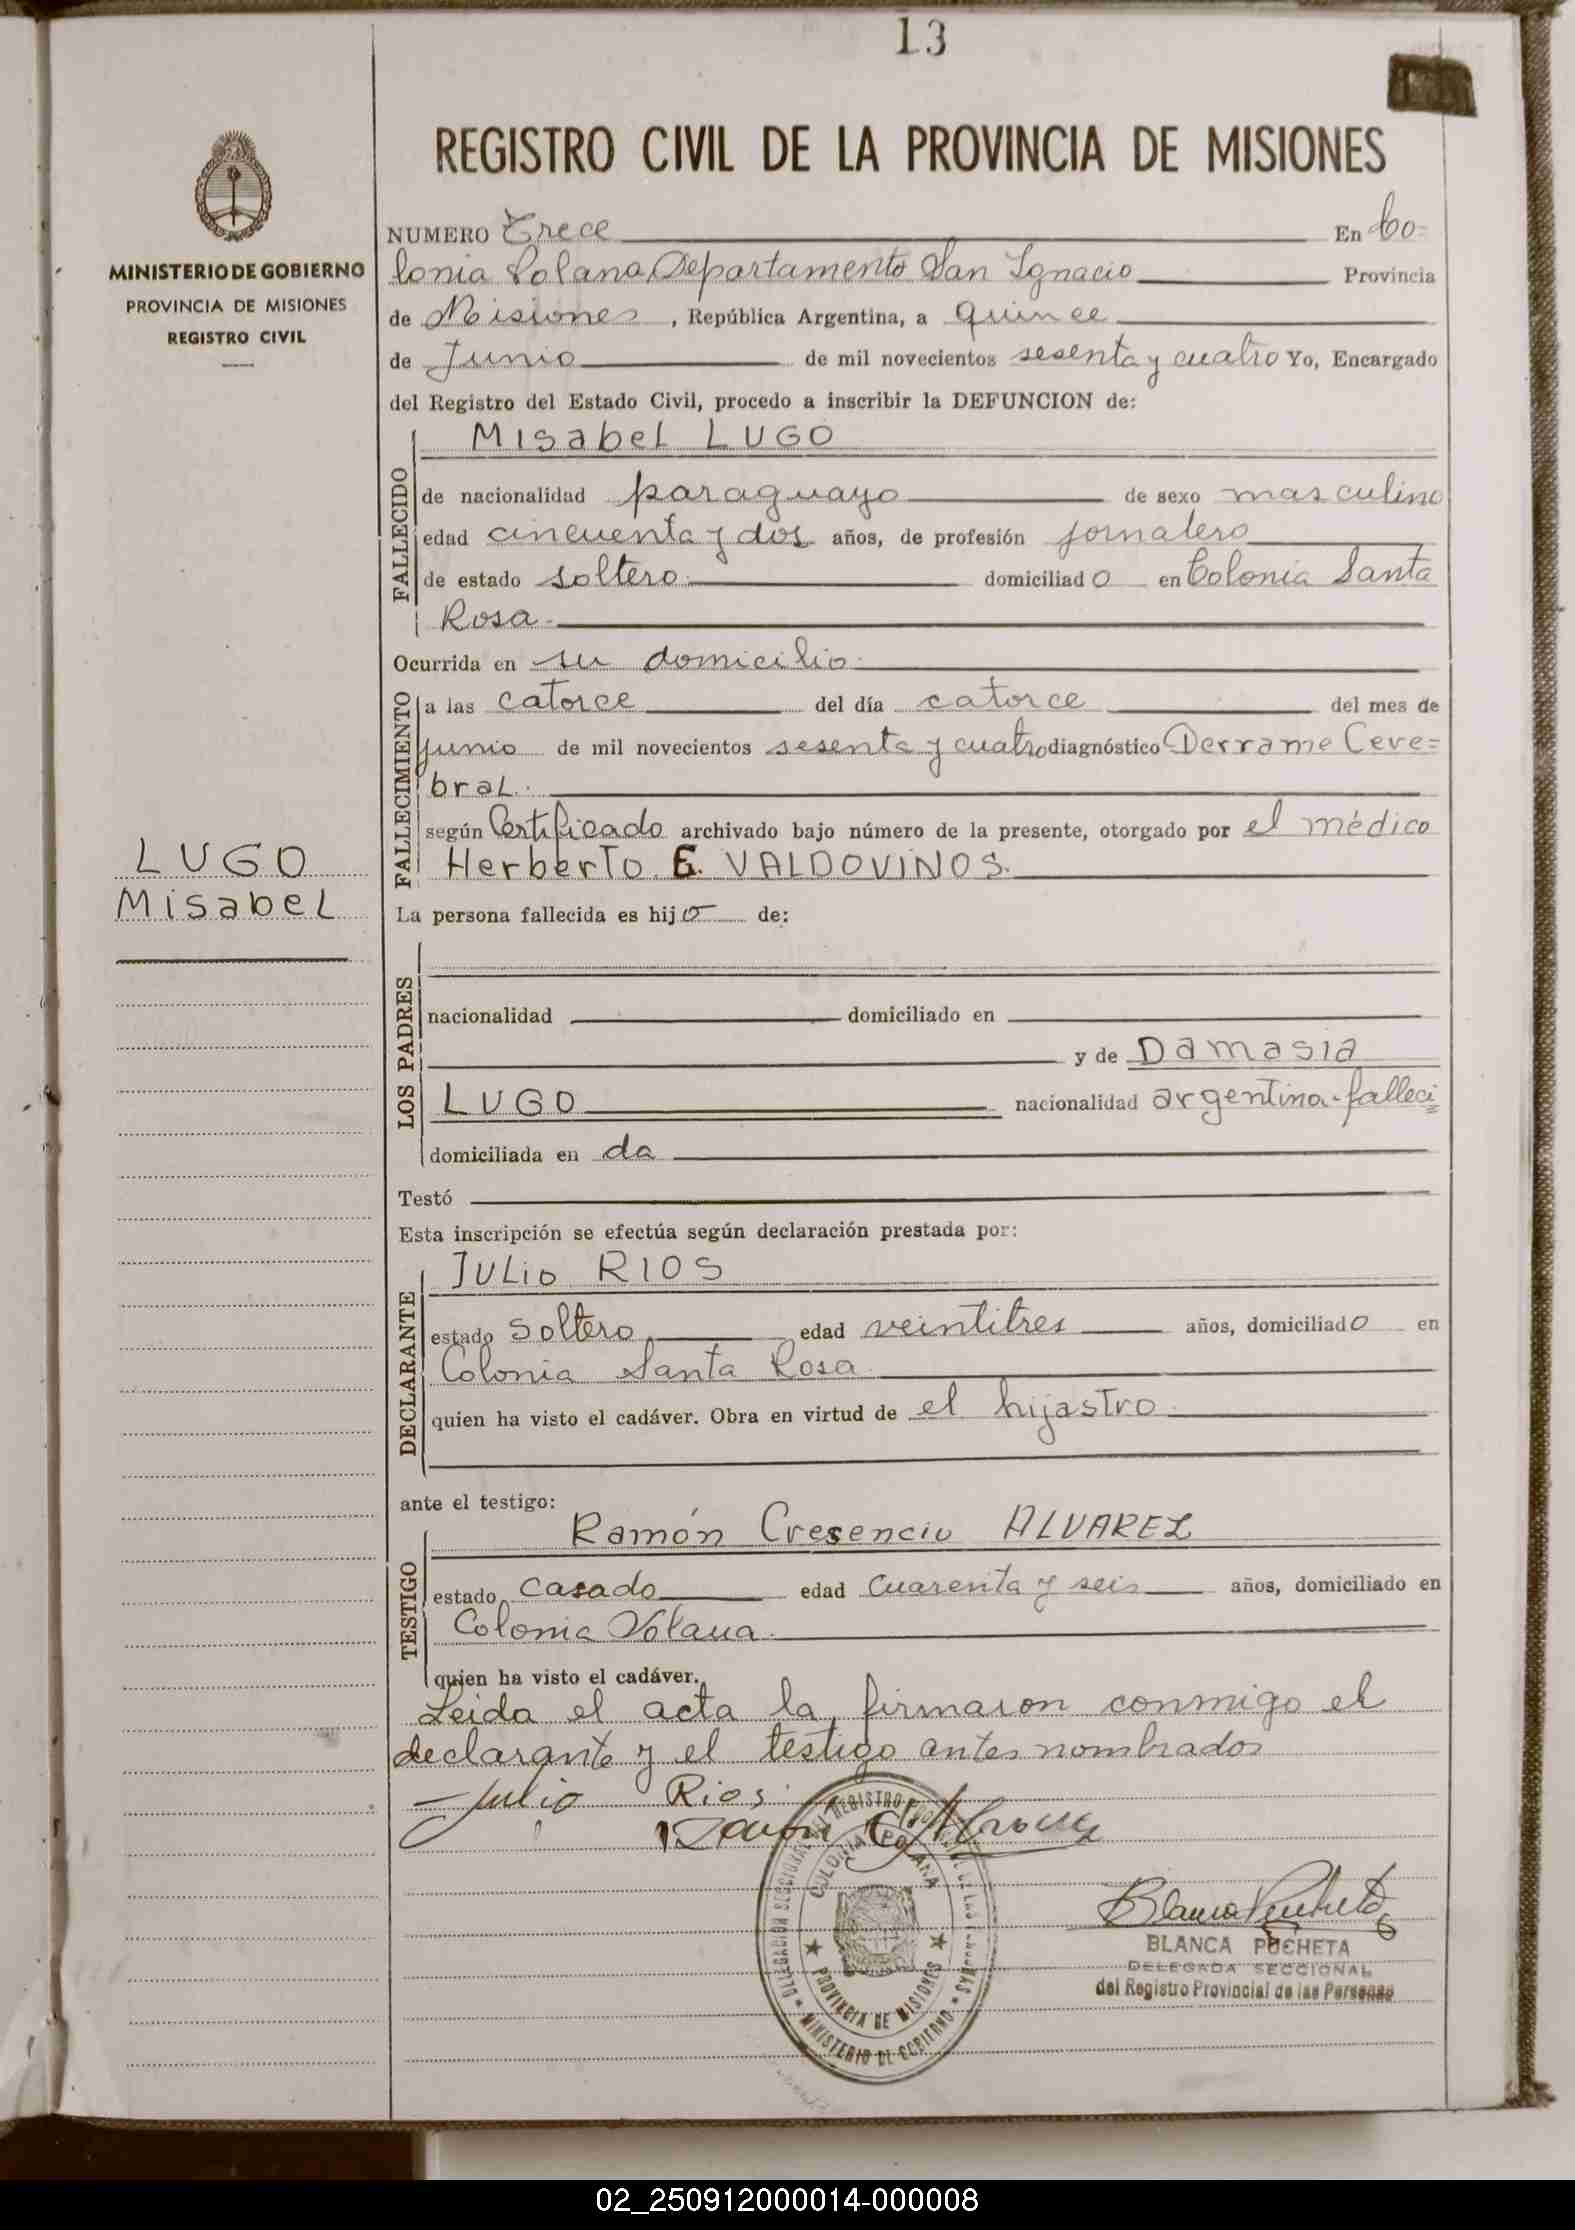 13
REGISTRO CIVIL DE LA PROVINCIA DE MISIONES
MINISTERIO DE GOBIERNO
PROVINCIA DE MISIONES
REGISTRO CIVIL
LUGO
Misabel
NUMERO Trece En Co=
lonia Polana Departamento San Ignacio Provincia
de Misiones, República Argentina, a quince
de Junio de mil novecientos sesenta y cuatro Yo, Encargado
del Registro del Estado Civil, procedo a inscribir la DEFUNCION de:
Misabel LUGO
FALLECIDO
de nacionalidad paraguayo de sexo masculino
edad cincuenta y dos años, de profesión jornalero
de estado soltero. domiciliado en Colonia Santa
Rosa.
Ocurrida en su domicilio.
FALLECIMIENTO
a las catorce del día catorce del mes de
junio de mil novecientos sesenta y cuatro diagnóstico Derrame Cere=
bral.
según Certificado archivado bajo número de la presente, otorgado por el médico
Herberto E. VALDOVINOS.
La persona fallecida es hijo de:
LOS PADRES
nacionalidad domiciliado en
y de Damasia
LUGO nacionalidad argentina-falleci=
domiciliada en da
Testó
Esta inscripción se efectúa según declaración prestada por:
DECLARANTE
Julio RIOS
estado soltero edad veintitres años, domiciliado en
Colonia Santa Rosa
quien ha visto el cadáver. Obra en virtud de el hijastro.
ante el testigo:
TESTIGO
Ramón Cresencio ALVAREZ
estado casado edad cuarenta y seis años, domiciliado en
Colonia Polana.
quien ha visto el cadáver.
Leida el acta la firmaron conmigo el
declarante y el testigo antes nombrados
Julio Rios
COLONIA POLANA
PROVINCIA DE MISIONES
MINISTERIO DE GOBIERNO
BLANCA PUCHETA
DELEGADA SECCIONAL
del Registro Provincial de las Personas
02_250912000014-000008